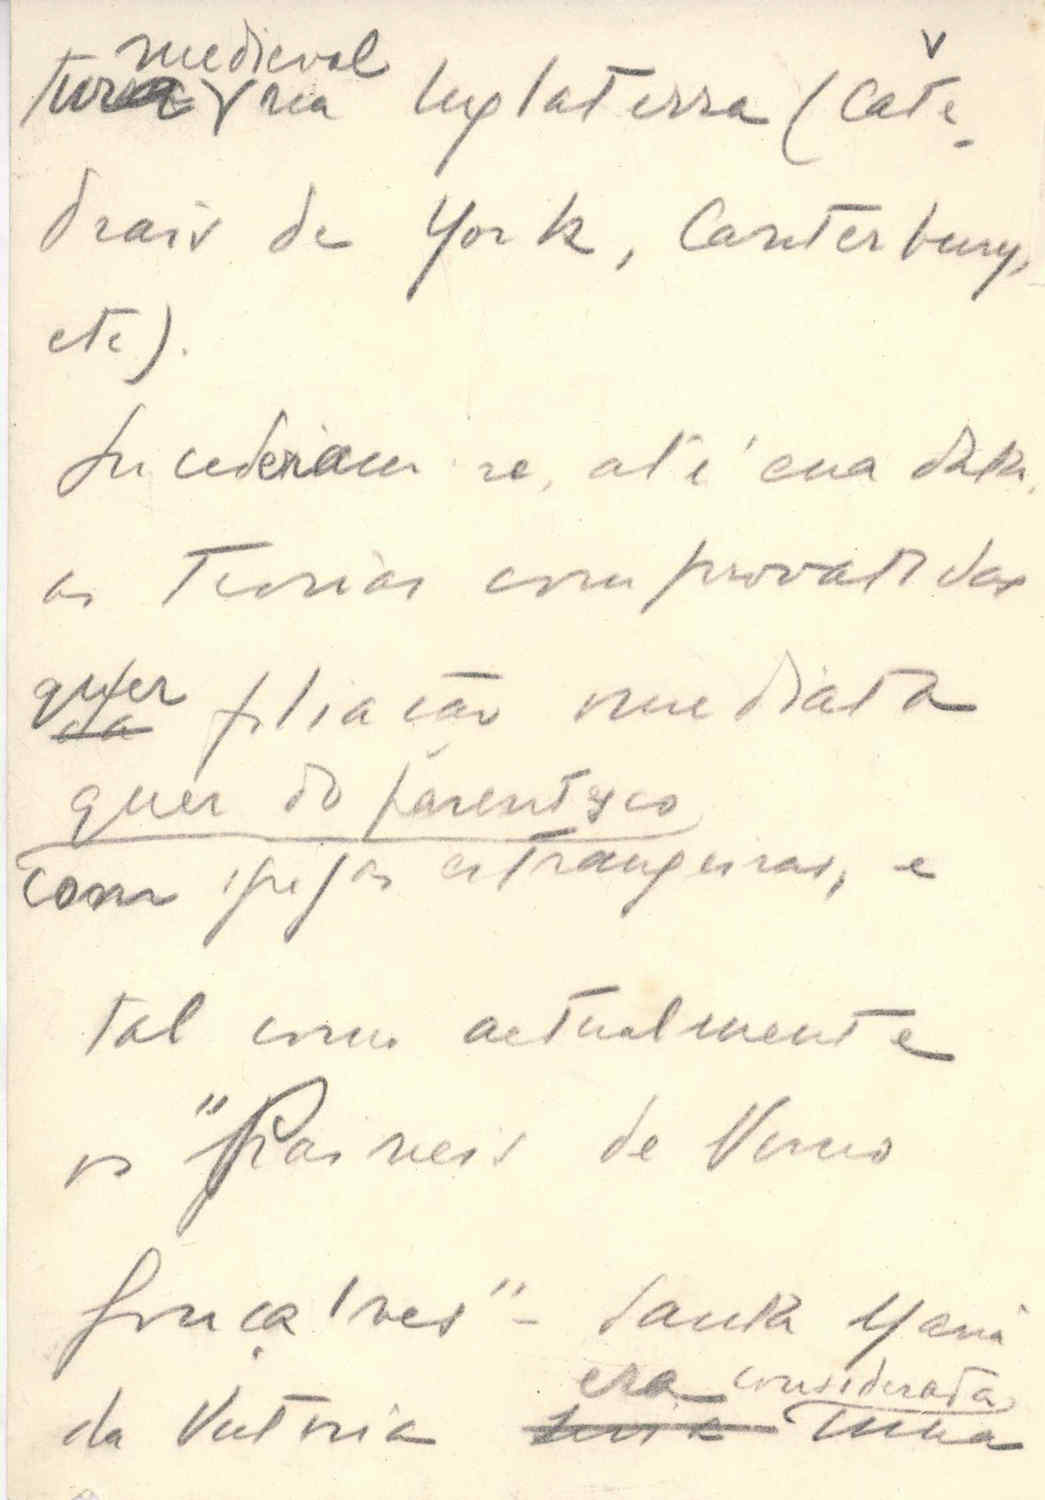 medieval
tura na Inglaterra (Cate-
drais de York, Canterbury,
etc).
Sucederam-se, até essa data,
as teorias comprovativas
quer
da filiação imediata
quer do parentesco
com igrejas estrangeiras, e
tal como actualmente
os "Paineis de Nuno
Gonçalves" - Santa Maria
era considerada
da Vitoria seria uma